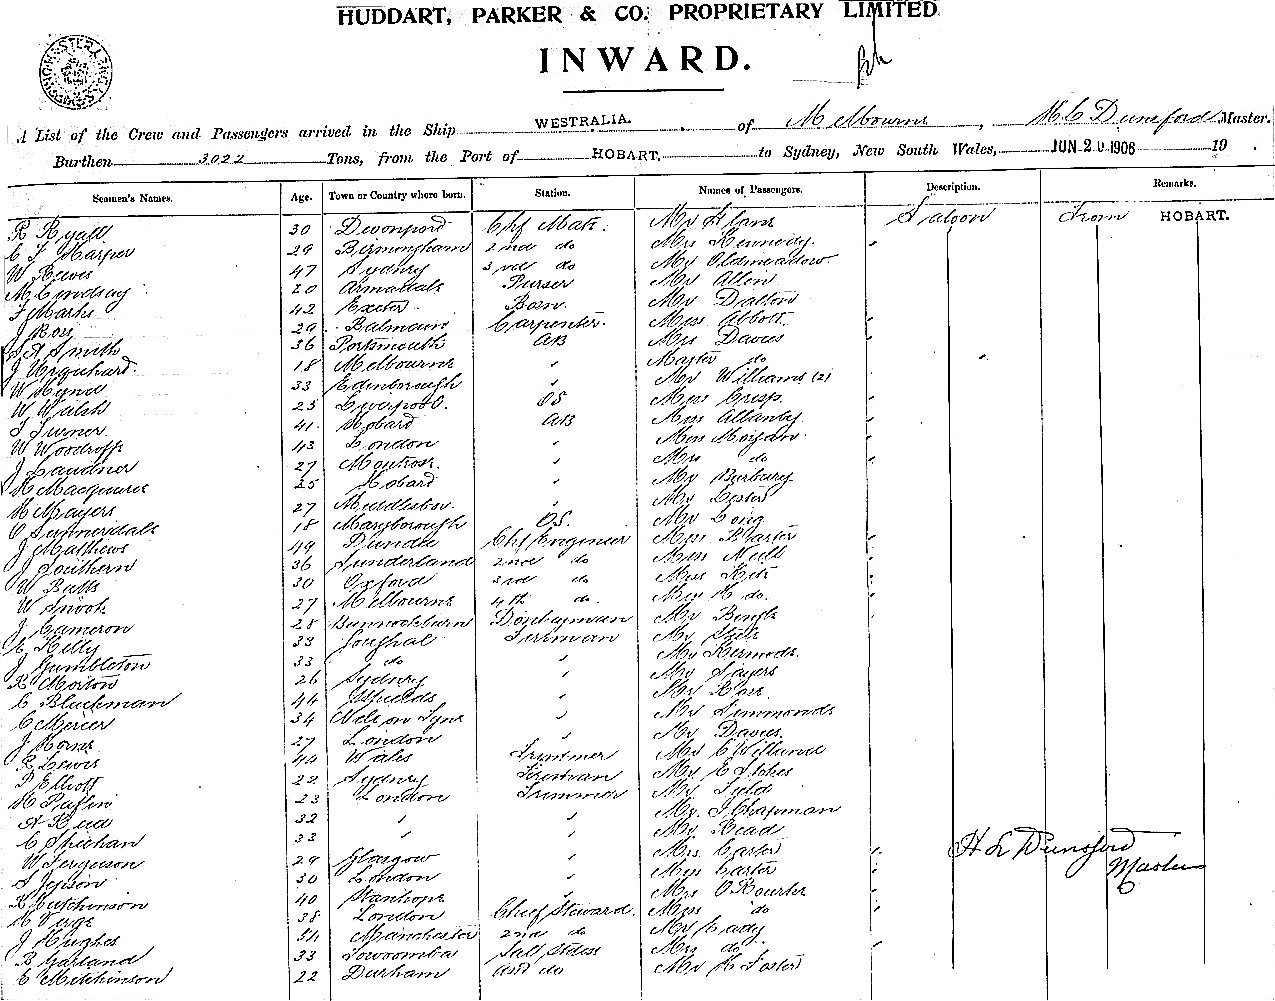 HUDDART, PARKER & CO. PROPRIETARY LIMITED
INWARD.
A List of the Crew and Passengers arrived in the Ship WESTRALIA. of Melbourne, Dunsford Master.
Burthen 3022 Tons, from the Port of HOBART. to Sydney, New South Wales, JUN 20 1906 19 .
Seamen's Names. Age. Town or Country where born. Station. Names of Passengers. Description. Remarks.
R Hyatt 30 Devonport Chf Mate. Mr Saloon from HOBART.
C F Harper 29 Birmingham 2nd do Mrs Kennedy
W Hewis 47 Sydney 3rd do Mr Oldmeadow
M Lindsay 20 Armadale Purser Mr Allin
F Marks 42 Exeter Bosn. Mr Dalton
J Ross 29 Balmain Carpenter. Miss Abbott.
Smith 36 Portsmouth AB Mrs Davies
J Urquhard 18 Melbourne " Master do
W Hynd 33 Edinborough " Mr Williams (2)
W Walsh 25 Liverpool. OS Miss Crisp.
Turner 41 Hobard AB Miss Allanby
W Woodroffe 43 London " Miss Morgan
J Laudner 27 Montrose " Mrs do
25 Hobard " Mr Burbury
H Mayers 27 Middlesbro. " Mr Lester
18 Maryborough OS. Mr Long
J Mathews 49 Dundee Chf Engineer Miss Harter
J Southern 36 Sunderland 2nd do Miss Neill
W Batts 30 Oxford 3rd do Miss
W Snook 27 Melbourne 4th do. Miss H do.
J Cameron 28 Bannockburn Donkeyman Mr Bingle
C Kelly 33 Youghal Fireman Mr
J Gumbleton 33 do " Mr Kermode.
R Morton 26 Sydney " Mr Sayers
C Blackman 44 Shields " Mr
C Mercer 34 " Mr Simmonds
J Horne 27 London " Mr Davies.
R Lewis 40 Wales Trimmer Mr C Willand
P Elliott 22 Sydney Fireman Mr E Stokes
23 London Trimmer Mr
A Reed 32 " " Mr. J Chapman
C Sheehan 33 " " Mr Read
W Ferguson 29 Glasgow " Mrs Carter H L Dunsford
Jepson 30 London " Miss Carter Master
R Hutchinson 40 Stanhope " Mrs O'Rourke
H Verge 38 London Chief Steward. Miss do
J Hughes 34 Manchester 2nd do Mr Eady
B Garland 33 Toowoomba Mrs do
C Mitchinson 22 Durham do Mr H Foster